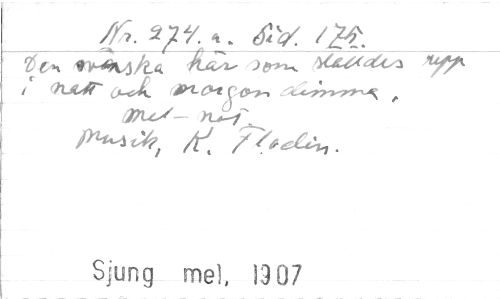 Nr. 274.a. Sid. 175.
Den svänska här som ställdes upp
i natt och morgondimma,
mel-not
Musik, K. Flodin.
Sjung mel, 1907